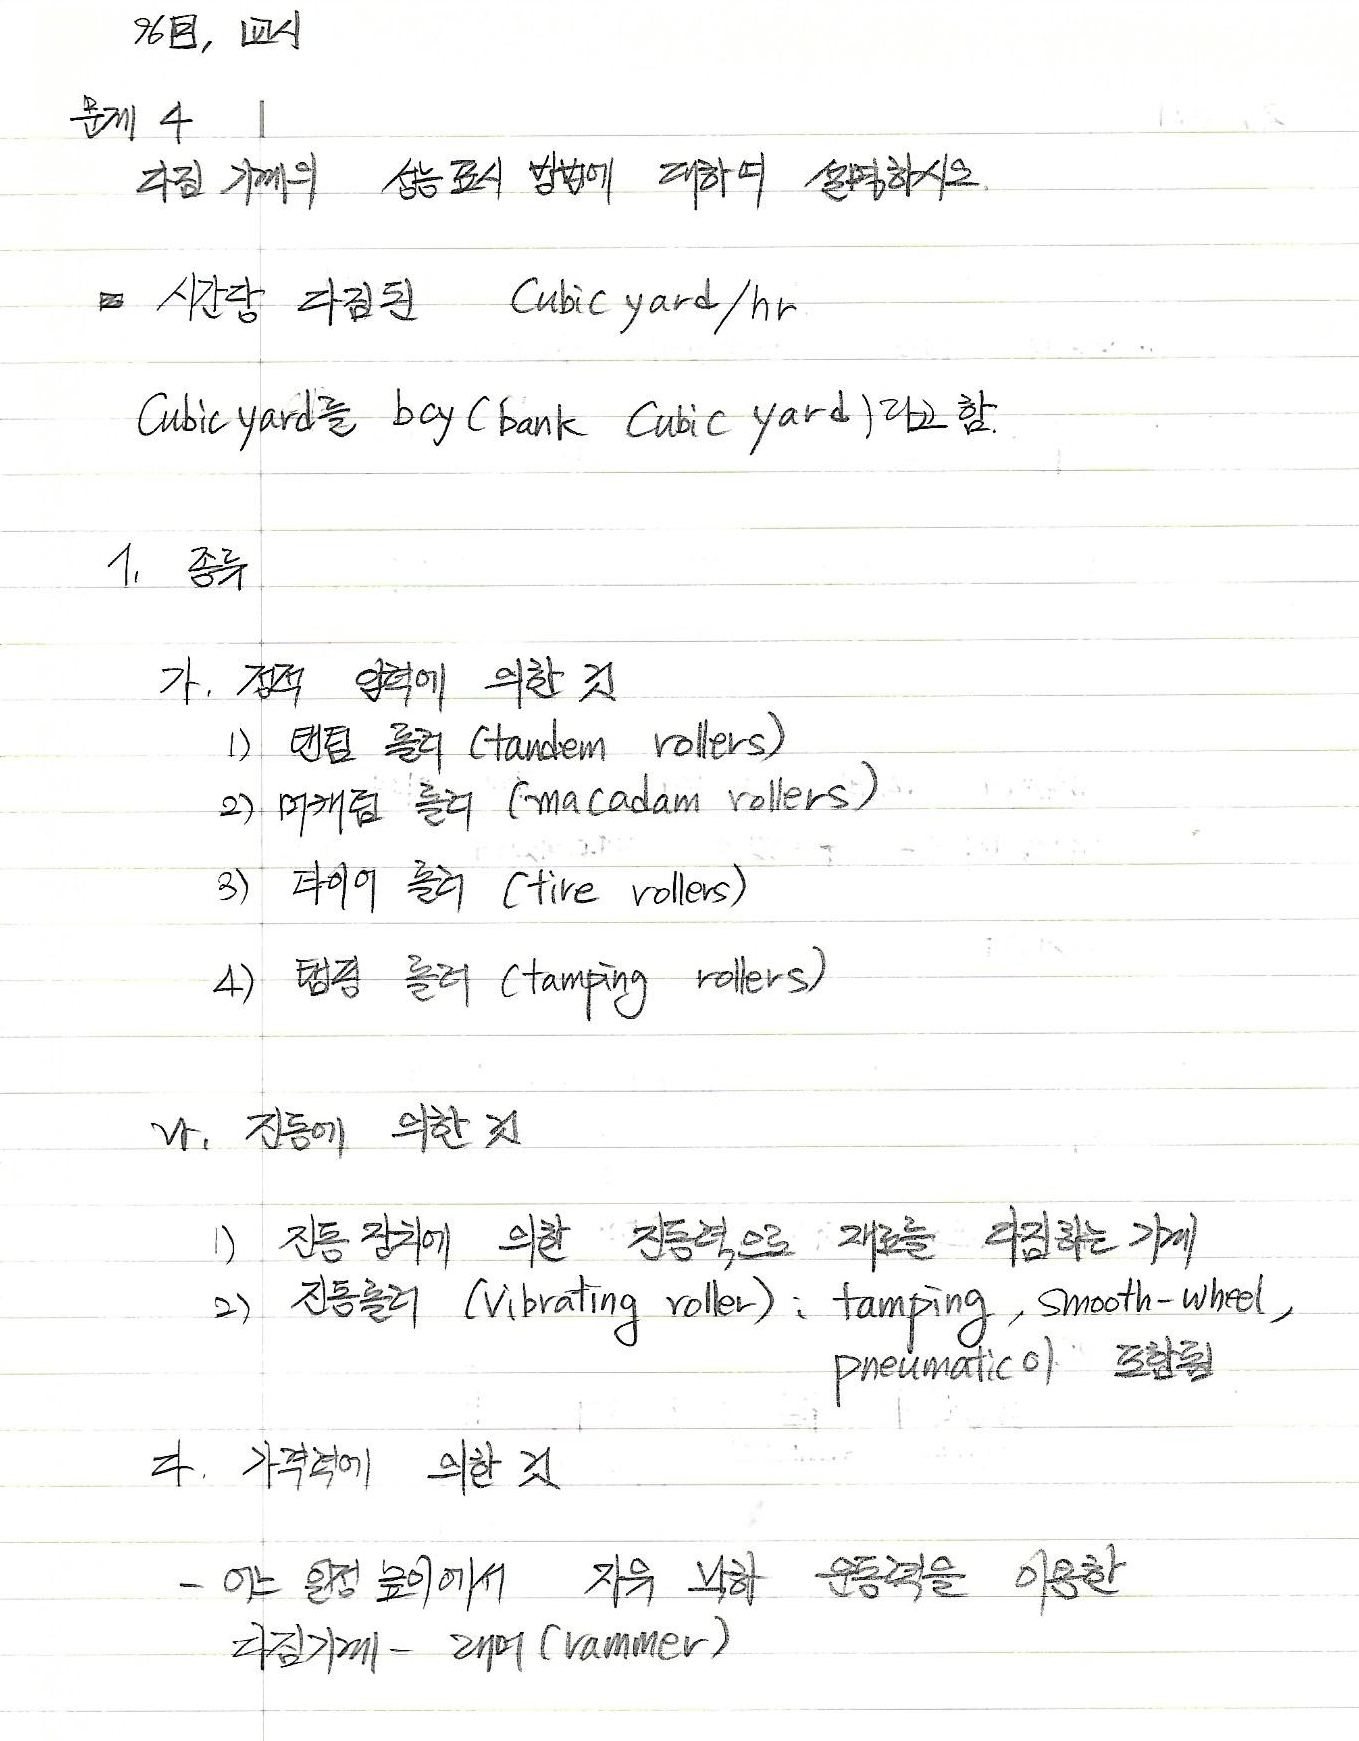 96회, 1교시
문제 4
다짐 기계의 성능 표시 방법에 대하여 설명하시오.
= 시간당 다짐된 Cubic yard/hr
Cubic yard를 bcy (bank Cubic yard)라고 함.
1. 종류
가. 정적 압력에 의한 것
1) 탠덤 롤러 (tandem rollers)
2) 머캐덤 롤러 (macadam rollers)
3) 타이어 롤러 (tire rollers)
4) 탬핑 롤러 (tamping rollers)
나. 진동에 의한 것
1) 진동 장치에 의한 진동력으로 재료를 다짐하는 기계
2) 진동롤러 (Vibrating roller) : tamping, smooth-wheel,
pneumatic이 포함됨
다. 가격력에 의한 것
- 어느 일정 높이에서 자유 낙하 운동력을 이용한
다짐기계 - 래머 (rammer)